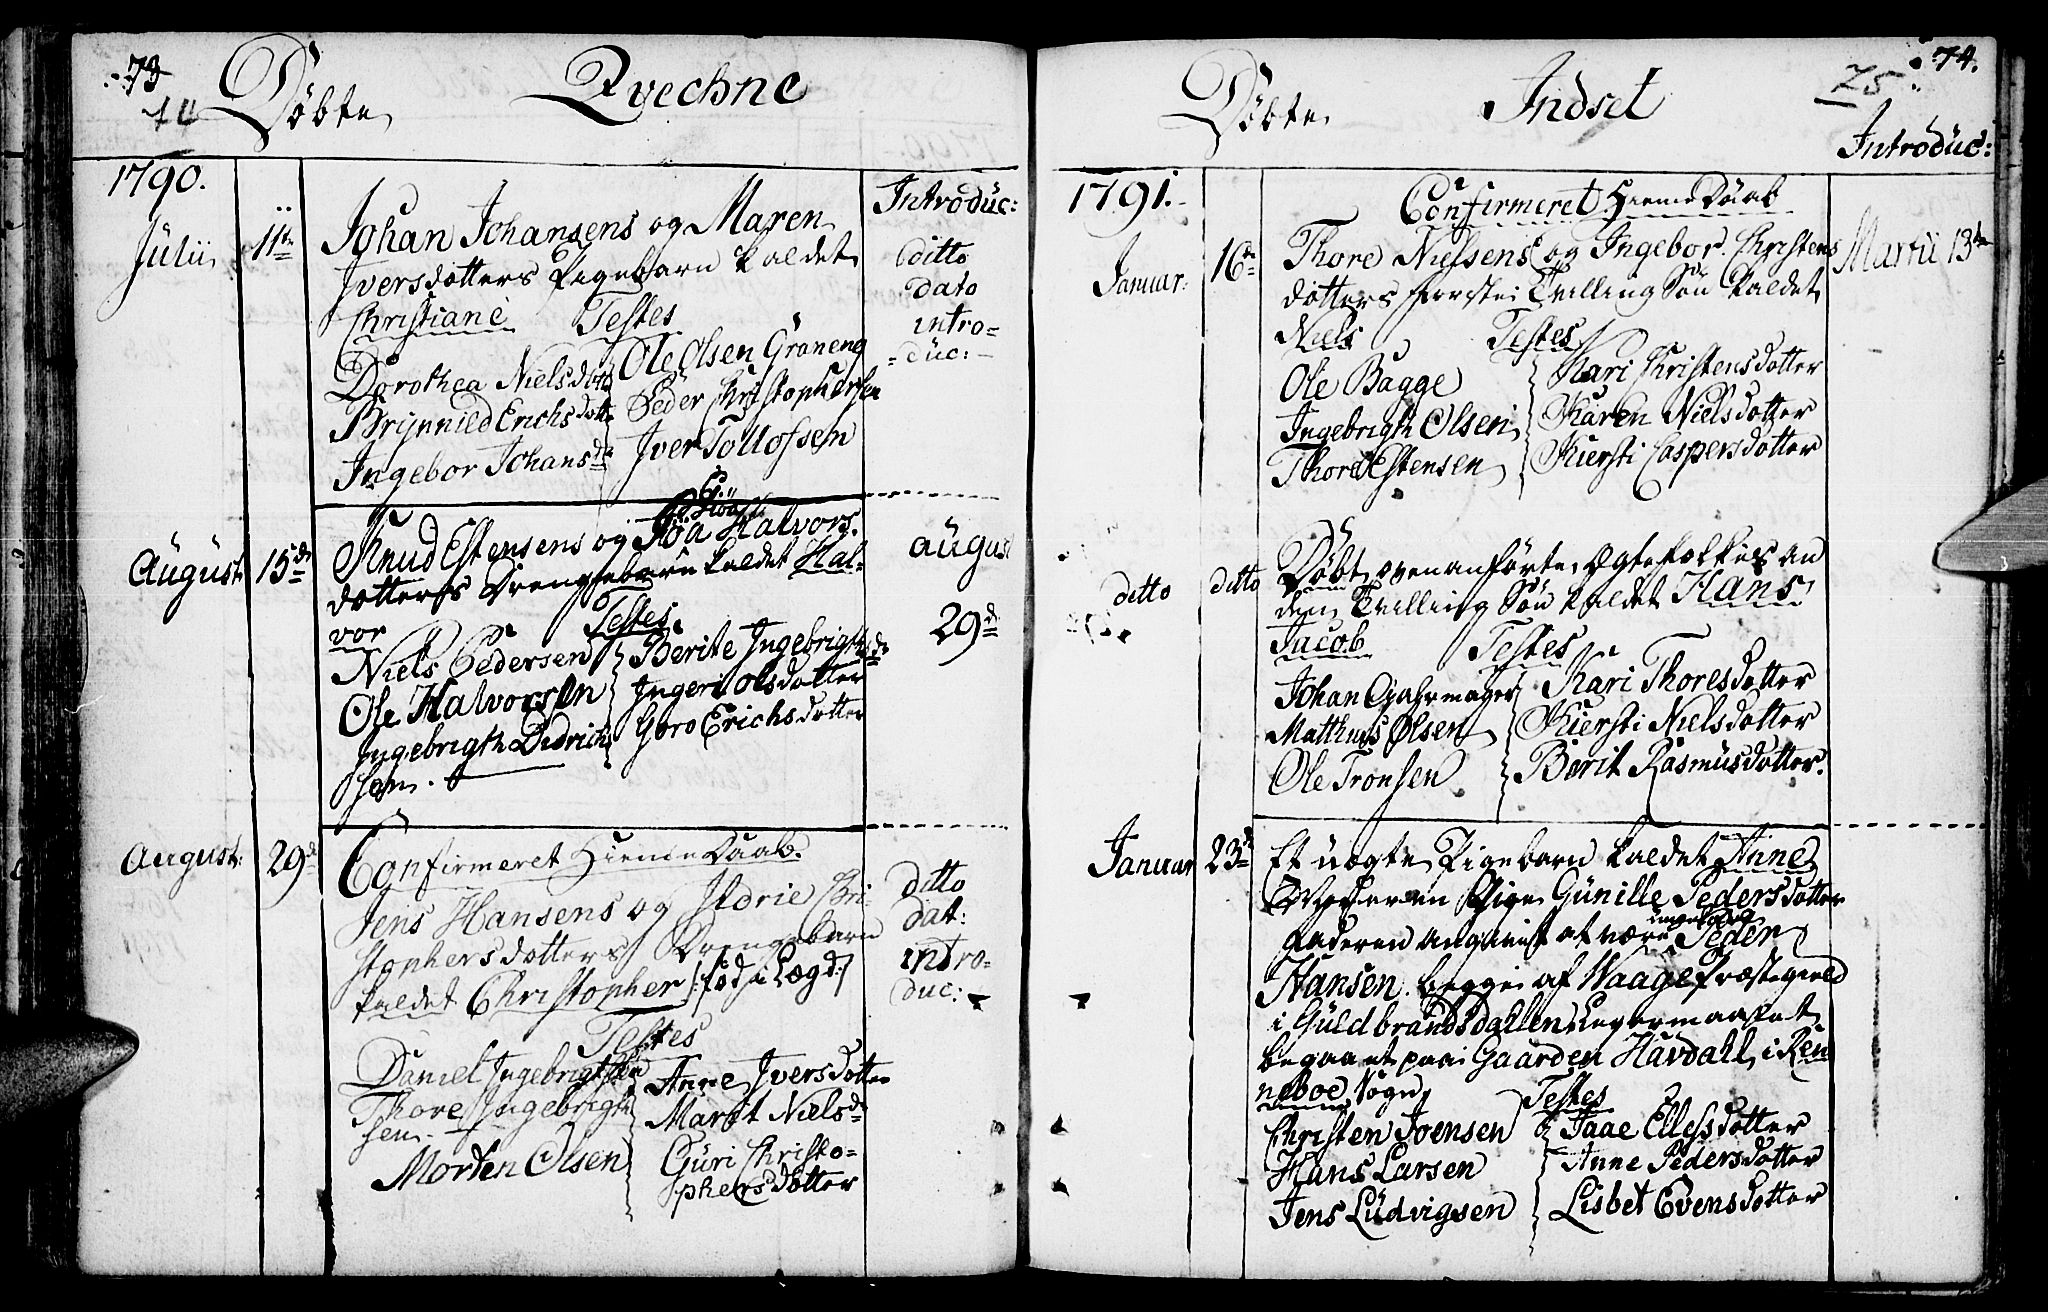 73
74
Döbte Qvechne
1790.
Julii 11te
Johan Johansens og Maren
Iversdotters Pigebarn kaldet
Christiane Testes
Dorothea Nielsdott
Brynnild Erichsdotte
Ingebor Johansdr
Ole Olsen Gröneng
Peder Christophersen
Iver Tollofsen
Introduc:
ditto
dato
intro=
=duc:
August 15de
Knud Estensens og Halvors
dotters Drengebarn kaldet Hal-
vor Testes
Niels Pedersen
Ole Halvorsen
Ingebrigth Didrich
sen.
Berite Ingebrigthsdr
Ingeri Olsdotter
Goro Erichsdotter
August
29de
August: 29de
Confirmeret Hieme Daab.
Jens Hansens og Chri-
stophersdotters Drengebarn
kaldet Christopher /:föd i Lægd:/
Testes
Daniel Ingebrigtsen
Thore Ingebrigth
sen.
Morten Olsen
Anne Iversdotter
Marit Nielsdr
Guri Christo-
phersdotter
ditto
dat:
intro-
duc:
74.
75.
Döbte Indset
Introduc:
1791.
Januar: 16de
Confirmeret Hieme Daab
Thore Nielsens og Ingebor Christens
dotters förste Tvilling Sön kaldet
Niels Testes
Ole Bagge
Ingebrigth Olsen
Thore Estensen
Kari Christensdotter
Karen Nielsdotter
Kiersti Caspersdotter
Martii 13de
ditto ditto
Döbt ovenanförte Ægtefolkes an
den Tvilling Sön kaldet Hans
Jacob Testes
Johan Gjahrmager
Matthias Olsen
Ole Tronsen
Kari Thoresdotter
Kiersti Nielsdotter
Berit Rasmusdotter.
Januar 23de
Et uægte Pigebarn kaldet Anne
Moderen Pige Gunille Pedersdotter
Faderen angivet at være ungekarl Peder
Hansen begge af Waage Præstegield
i Guldbrandsdahlen Legermaalet
begaaet paa Gaarden Havdahl i Ren
neboe Sogn Testes
Christen Joensen
Hans Larsen
Jens Ludvigsen
Ellefsdotter
Anne Pedersdotter
Lisbet Evensdotter